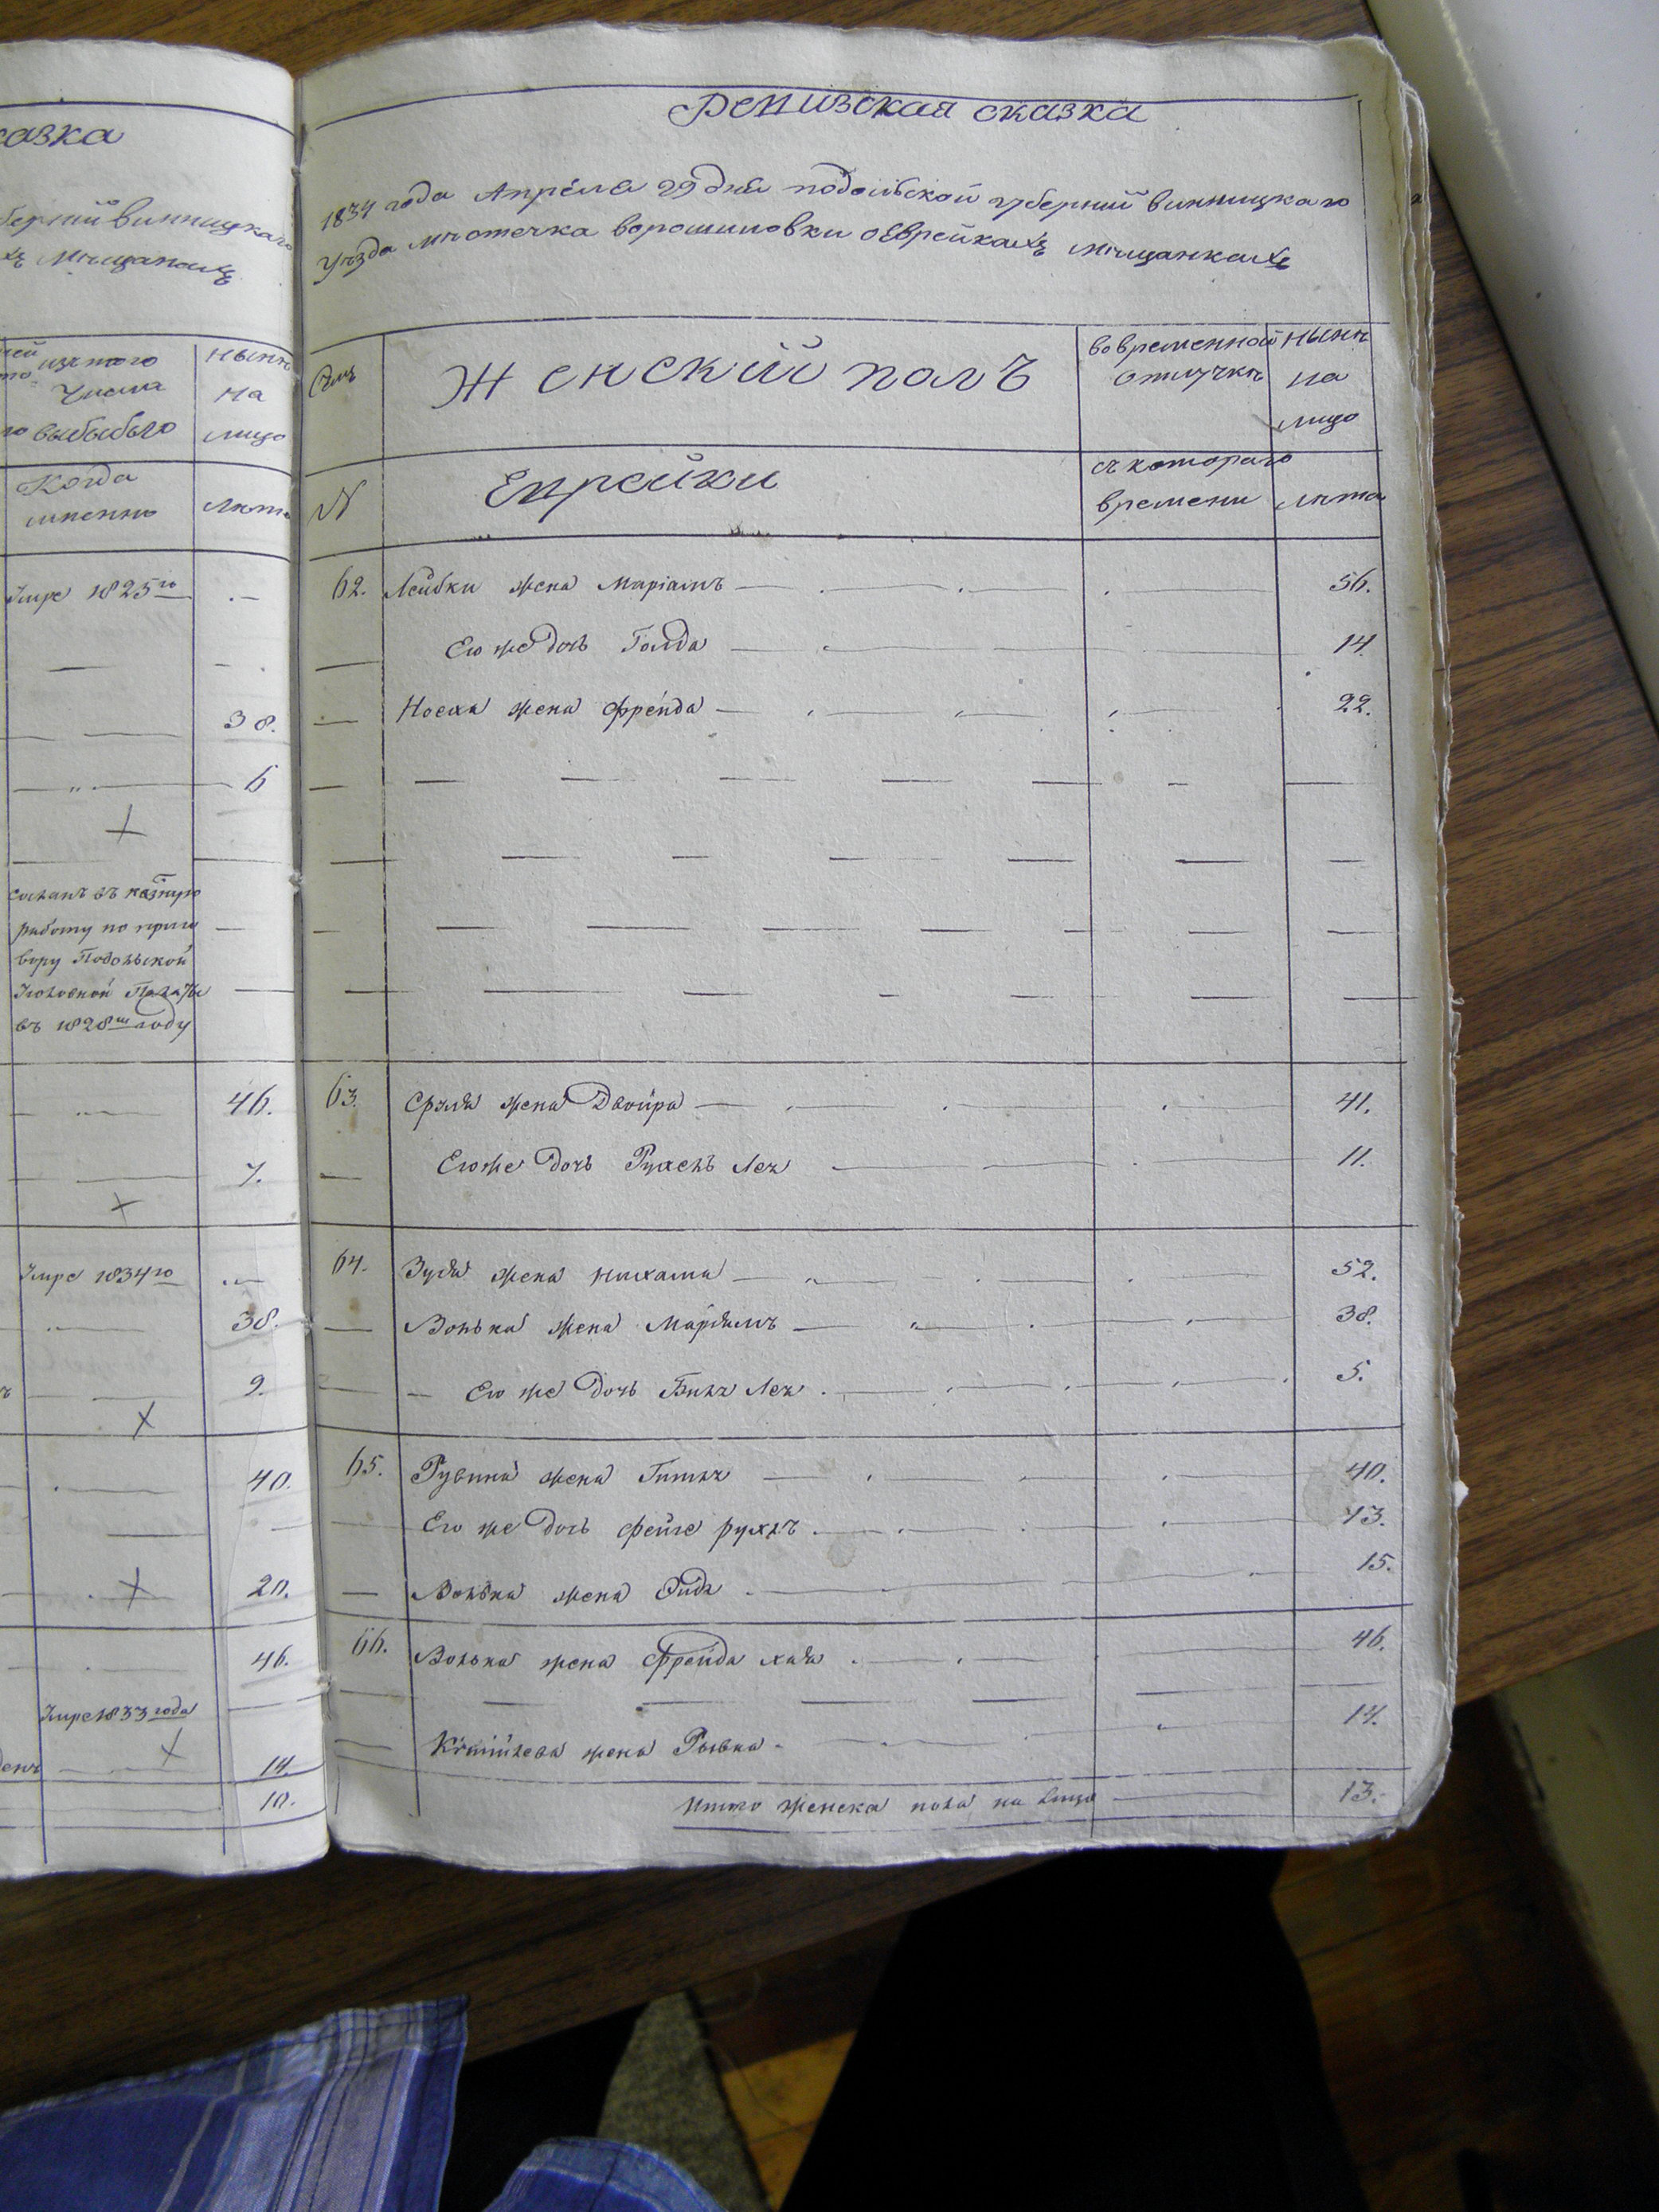 казка
берніи винницкаго
хъ мѣщанахъ
изтого
числа
выбывыло
нынѣ
на
лицо
Когда
имѣнно
лѣта
Умре 1825го
38.
6
сосланъ въ казную
работу по приго
вору Подольской
Уголовной Палаты
въ 1828мъ году
46.
7.
Умре 1834го
38.
9.
40.
20.
46.
Умре 1833 года
14.
10.
Ревизская сказка
1834 года Апреля 29 дня подольской губерніи винницкаго
уѣзда мѣстечка ворошиловки о Еврейкахъ мѣщанкахъ
Женскій полъ
вовременной
отлучкѣ
нынѣ
на
лицо
№
Еврейки
съ котораго
времени
лѣта
62. Лейбки жена Маріамъ 56.
Его же дочь Голда 14.
Носка жена Фрейда 22.
63. Сруля жена Двойра 41.
Его же дочь Рухель Лея 11.
64. Зуся жена Нихама 52.
Волька жена Маріямъ 38.
Его же дочь Бейля Лея 5.
65. Рувина жена Гитля 40.
Его же дочь фейге рухль 13.
Волька жена Сидя 15.
66. Волька жена Фрейда хая 46.
жена Рывка 14.
Итого женска пола на лицо 13.